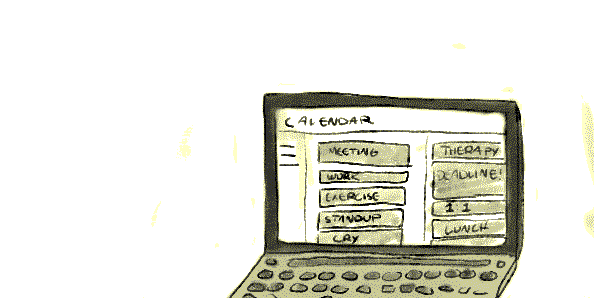 CALENDAR
MEETING
WORK
EXERCISE
STANDUP
CRY
THERAPY
DEADLINE!
1 1
LUNCH